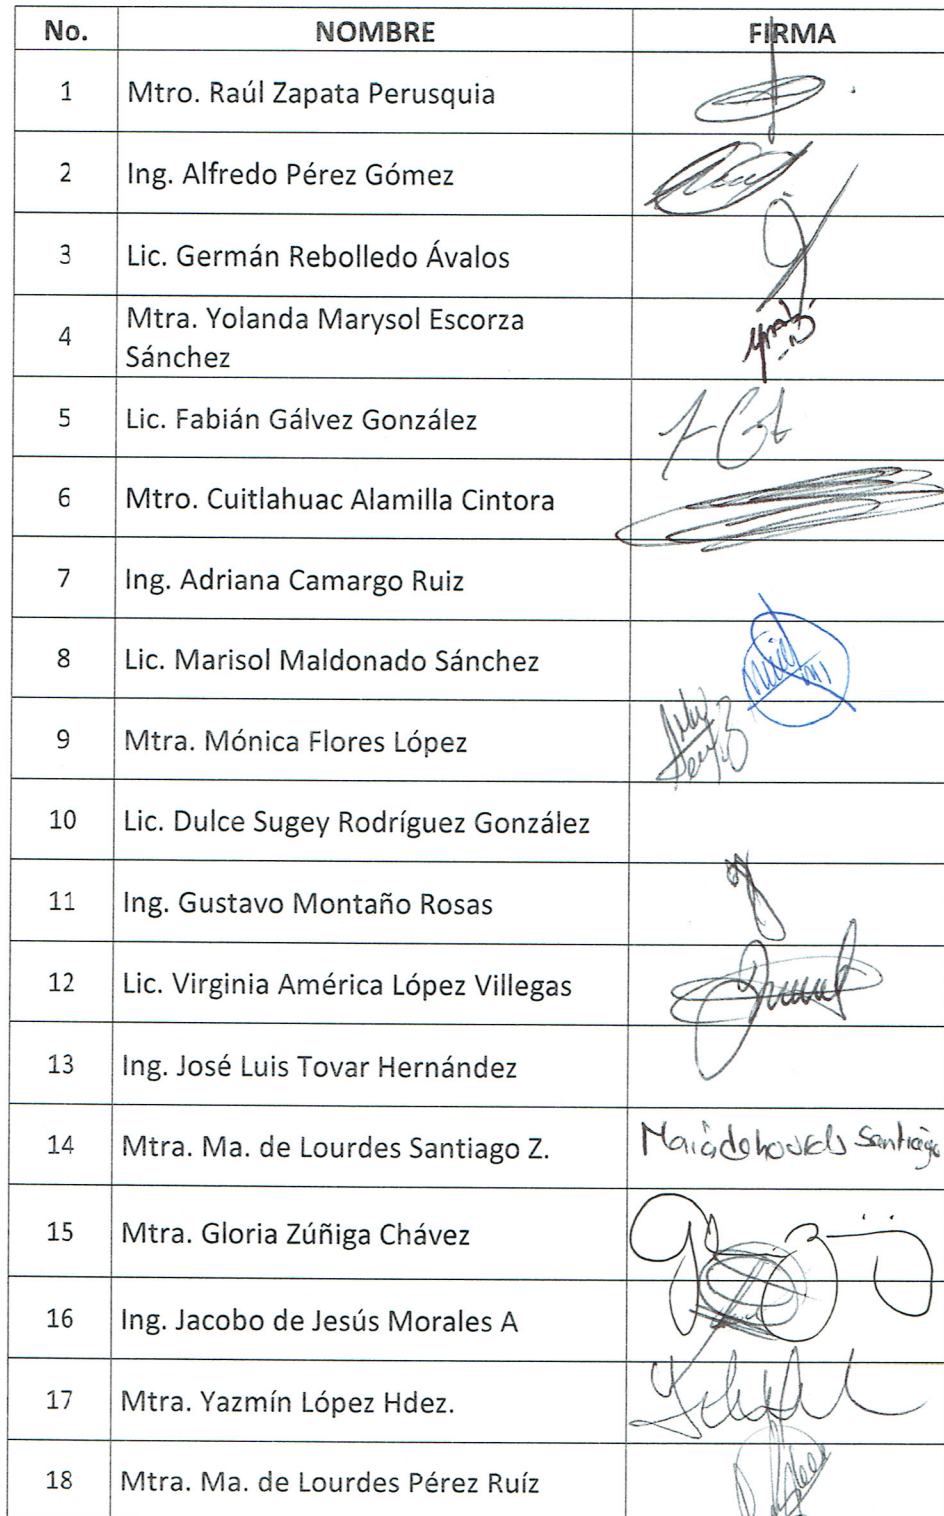 No. NOMBRE FIRMA
1 Mtro. Raúl Zapata Perusquia
2 Ing. Alfredo Pérez Gómez
3 Lic. Germán Rebolledo Ávalos
4 Mtra. Yolanda Marysol Escorza
Sánchez
5 Lic. Fabián Gálvez González
6 Mtro. Cuitlahuac Alamilla Cintora
7 Ing. Adriana Camargo Ruiz
8 Lic. Marisol Maldonado Sánchez
9 Mtra. Mónica Flores López
10 Lic. Dulce Sugey Rodríguez González
11 Ing. Gustavo Montaño Rosas
12 Lic. Virginia América López Villegas
13 Ing. José Luis Tovar Hernández
14 Mtra. Ma. de Lourdes Santiago Z. Santiago
15 Mtra. Gloria Zúñiga Chávez
16 Ing. Jacobo de Jesús Morales A
17 Mtra. Yazmín López Hdez.
18 Mtra. Ma. de Lourdes Pérez Ruíz